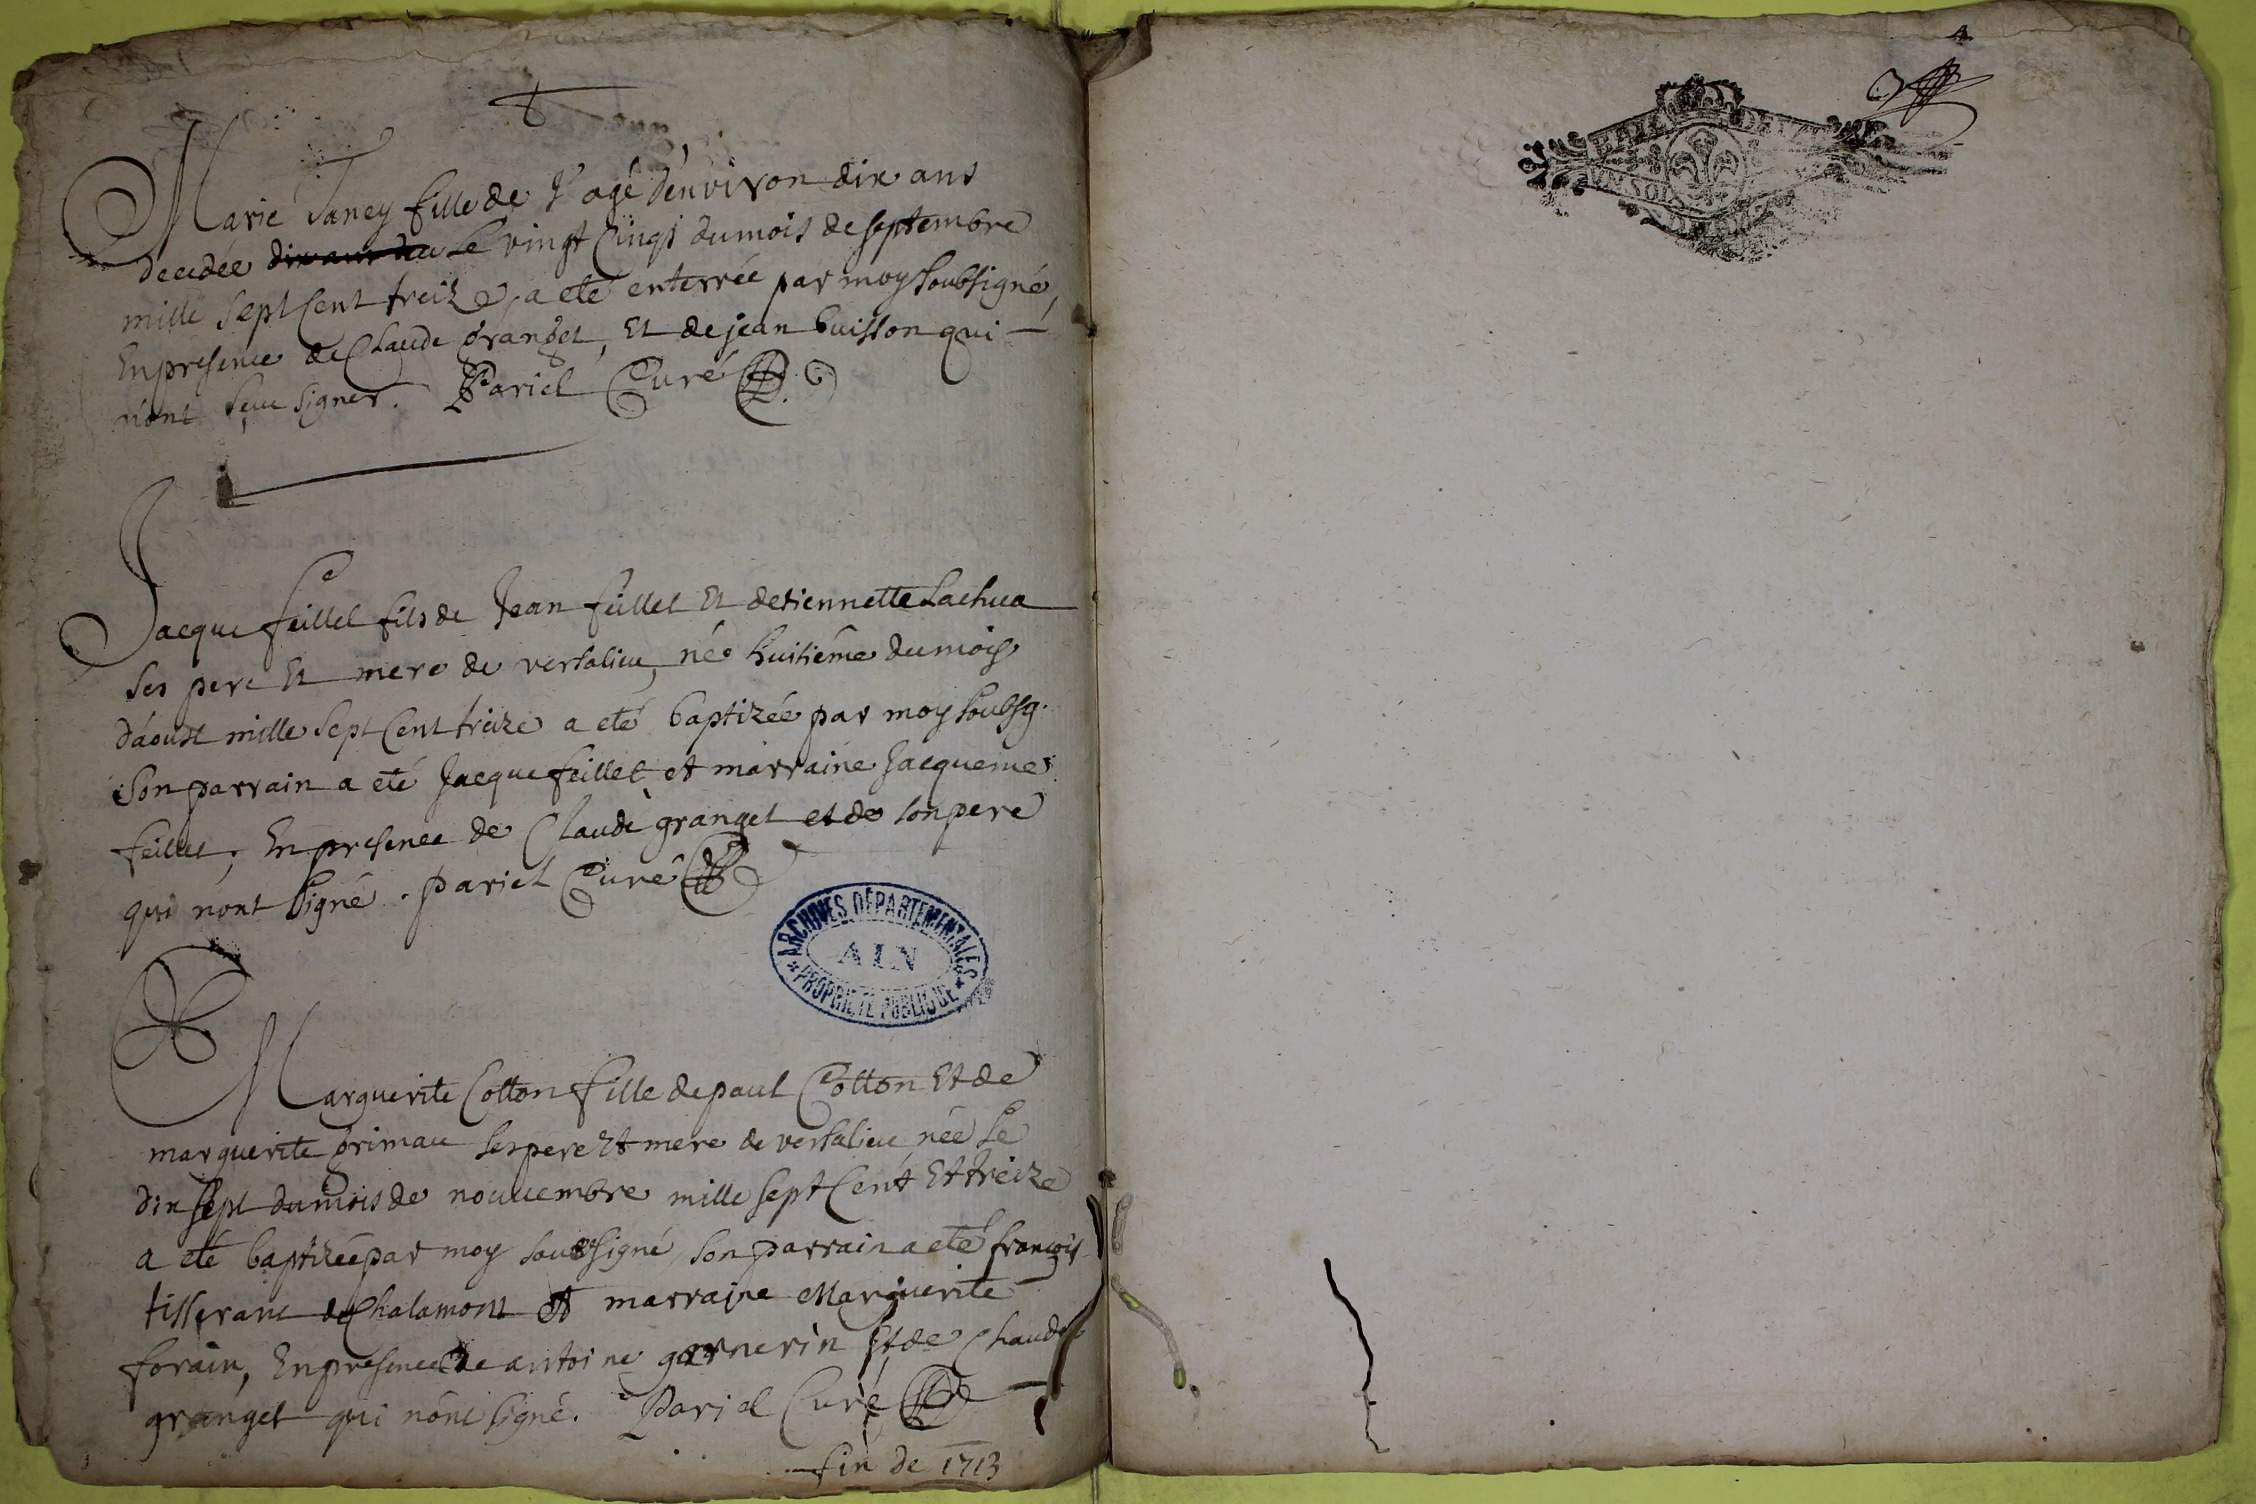 Marie Janey fille de agé d'environ dix ans
decedée le vingt Cinqs du mois de septembre
mille sept Cent treize, a eté enterrée par moy soubsigné,
En presence de Claude granget, Et de jean buisson qui
n'ont sceu signer. Pariel Curé
Jacque feillet fils de Jean feillet Et detiennette
ses pere Et mere de versalieu, né huitiême du mois
d'aoust mille sept Cent treize a eté baptizée par moy soubsg.
Son parrain a eté Jacque feillet et marraine Jacqueme
feillet, En presence de Claude granget et de son pere
qui n'ont signé. Pariel Curé
ARCHIVES DÉPARTEMENTALES
AIN
PROPRIÉTÉ PUBLIQUE
Marguerite Cotton fille de paul Cotton Et de
marguerite primau ses pere Et mere de versalieu, née Le
dix sept du mois de nouvembre mille sept Cent Et treize
a eté baptizée par moy soubsigné son parrain a eté françois
tisserant de Chalamont Et marraine Marguerite
forain, En presence de antoine garnerin Et de Claude
granget qui n'ont signé. Pariel Curé
fin de 1713